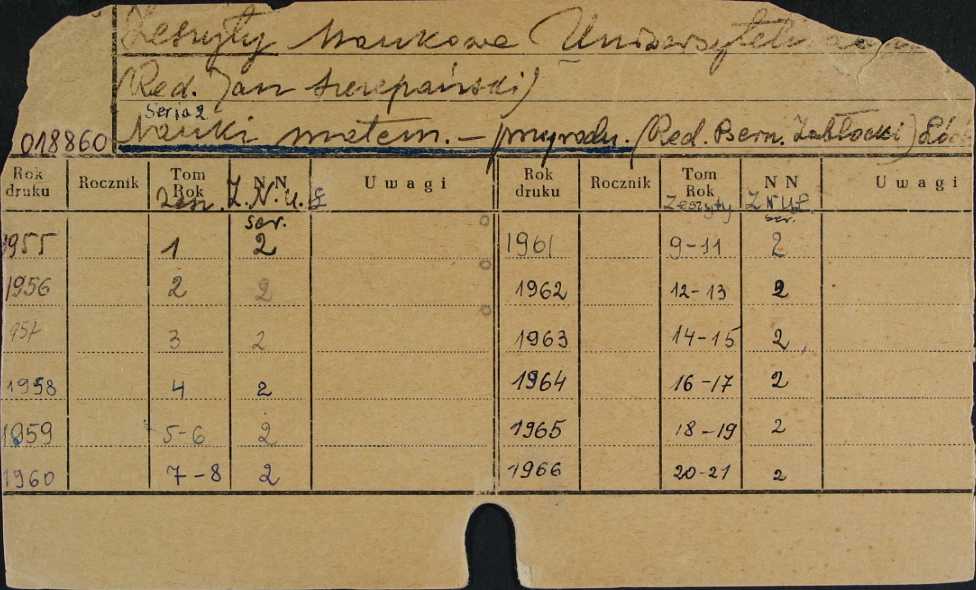 Zeszyty Naukowe Uniwersytetu
(Red. Jan Szczepański)
Seria 2
018860 Nauki matem. – przyrodn. (Red. Bern. Zabłocki) Łódź
Rok druku Rocznik Tom Rok N N Uwagi Rok druku Rocznik Tom Rok N N Uwagi
Zesz. Z.N.U.Ł Zeszyty ZNUŁ
ser. ser.
1955 1 2 1961 9-11 2
1956 2 2 1962 12-13 2
957 3 2 1963 14-15 2
1958 4 2 1964 16-17 2
1959 5-6 2 1965 18-19 2
1960 7-8 2 1966 20-21 2